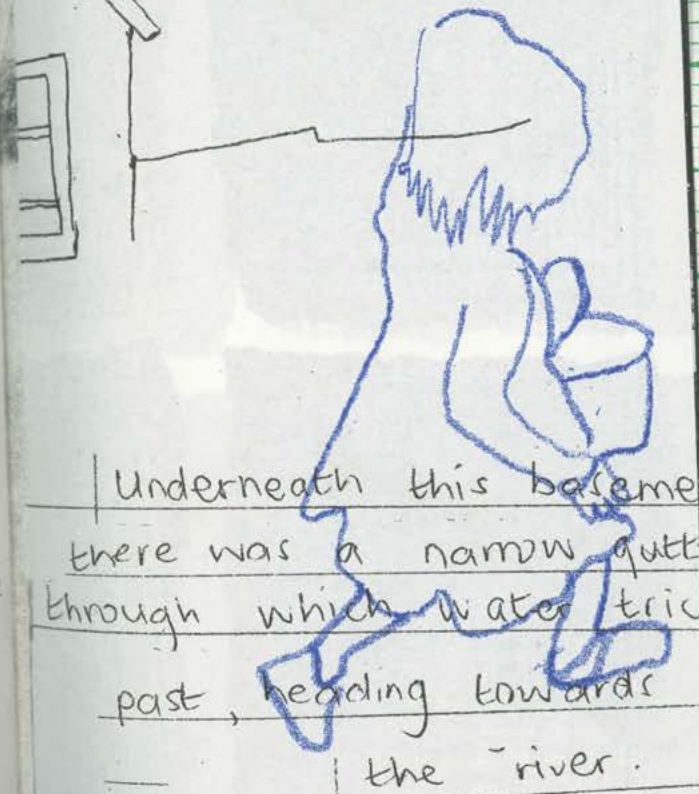 Underneath this baseme
there was a narrow gutt
through which water tric
past, heading towards
the river.